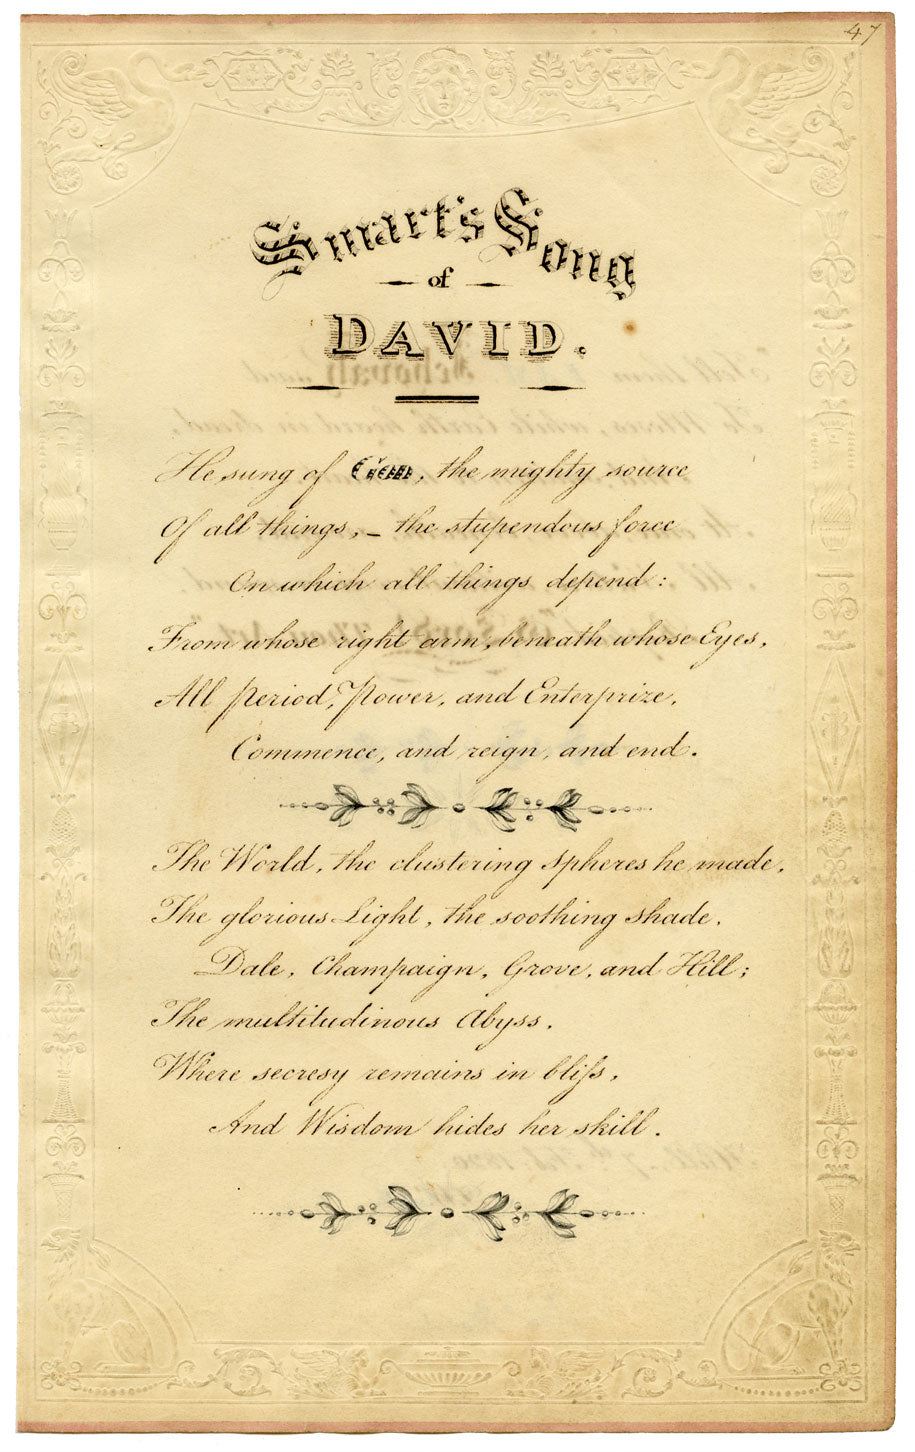 47
Smart's Song
of
DAVID.
He sung of , the mighty source
Of all things, – the stupendous force
On which all things depend:
From whose right arm, beneath whose Eyes,
All Period, Power, and Enterprize,
Commence, and reign, and end.
The World, the clustering Spheres he made,
The glorious Light, the soothing shade,
Dale, Champaign, Grove, and Hill;
The multitudinous Abyss,
Where secresy remains in bliſs,
And Wisdom hides her skill.